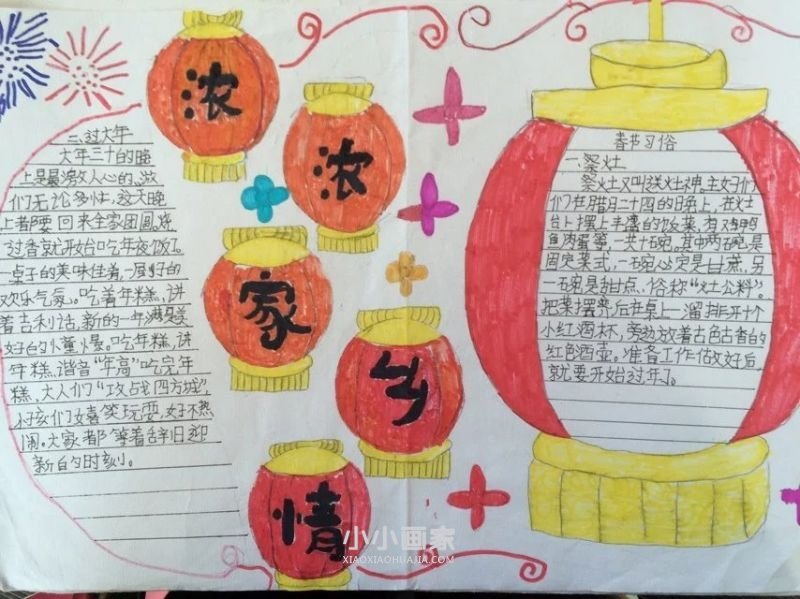 浓
浓
家
乡
情
二、过大年
大年三十的晚
上是最激人心的。
们无论多忙，这大晚
上者都要回来全家团圆，烧
过香就开始吃年夜饭了。
一桌子的美味佳肴，一屋子的
欢乐气氛。吃着年糕，讲
着吉利话，新的一年满是美
好白的憧憬。吃年糕，讲
年糕，谐音“年高”吃完年
糕，大人们“攻占戈四方城”，
小孩们女嬉笑玩耍，女子不热
闹。大家都等着辞旧迎
新白勺时刻。
春节习俗
一、祭灶
祭灶又叫送灶神，主妇们
们在腊月二十四的日晚上，在灶
台上摆上丰盛的饭菜，有鸡鸭
鱼肉蛋等，一共十碗，其中两碗是
固定菜式，一碗必定是甘蔗，另
一碗是甜点，俗称“灶公料”。
把菜摆齐后在桌上一溜排开十个
小红酒杯，旁边放着古色古香的
红色酒壶。准备工作做好后，
就要开始过年了。
小小画家
XIAOXIAOHUAJIA.COM